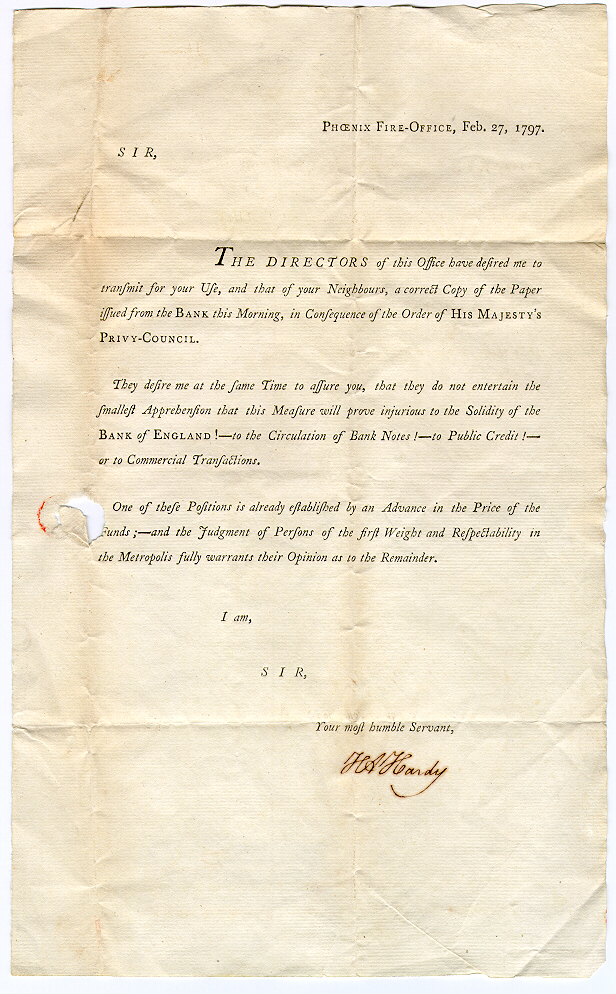 PHŒNIX FIRE-OFFICE, Feb. 27, 1797.
S I R,
THE DIRECTORS of this Office have deſired me to
tranſmit for your Uſe, and that of your Neighbours, a correct Copy of the Paper
iſſued from the BANK this Morning, in Conſequence of the Order of HIS MAJESTY'S
PRIVY-COUNCIL.
They deſire me at the ſame Time to aſſure you, that they do not entertain the
ſmalleſt Apprehenſion that this Meaſure will prove injurious to the Solidity of the
BANK OF ENGLAND!—to the Circulation of Bank Notes!—to Public Credit!—
or to Commercial Tranſactions.
One of theſe Poſitions is already eſtabliſhed by an Advance in the Price of the
Funds;—and the Judgment of Perſons of the firſt Weight and Reſpectability in
the Metropolis fully warrants their Opinion as to the Remainder.
I am,
S I R,
Your moſt humble Servant,
HA Hardy